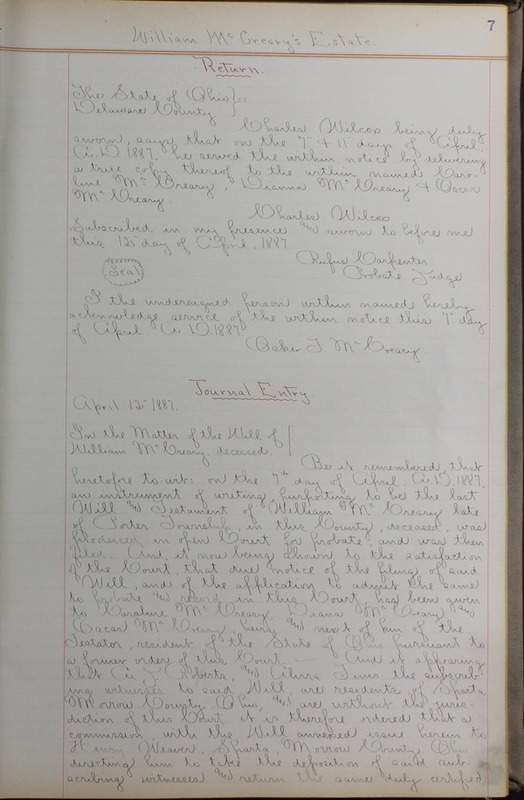 7
William McCreary's Estate.
Return.
The State of Ohio } ss
Delaware County }
Charles Wilcox being duly
sworn, says that on the 7" & 11" days of April
A.D. 1887, he served the within notice by delivering
a true copy thereof to the within named Caro-
line McCreary, Dianna McCreary & Oscar
McCreary.
Charles Wilcox
Subscribed in my presence and sworn to before me
this 12" day of April, 1887.
Rufus Carpenter
Seal
Probate Judge
I the undersigned person within named hereby
acknowledge service of the within notice this 7" day
of April A.D. 1887
McCreary.
Journal Entry.
April 12" 1887.
In the Matter of the Will of
William McCreary, deceased.
Be it remembered, that
heretofore to-wit: on the 7th day of April, A.D. 1887,
an instrument of writing, purporting to be the last
Will and Testament of William McCreary late
of Porter Township, in this County, deceased, was
produced in open Court for probate, and was then
filed. And, it now being shown to the satisfaction
of the Court, that due notice of the filing of said
Will, and of the application to admit the same
to probate and record in this Court, has been given
to Caroline McCreary, Diana McCreary and
Oscar McCreary, being and next of kin of the
Testator, resident of the State of Ohio pursuant to
a former order of this Court. And it appearing
that Roberts, and the subscrib-
ing witnesses to said Will are residents of Sparta
Morrow County Ohio, and are without the juris-
diction of this Court it is therefore ordered that a
commission, with the Will annexed issue herein to
Henry Weaver, Sparta, Morrow County, Ohio
directing him to take the deposition of said sub-
scribing witnesses and return the same duly certified